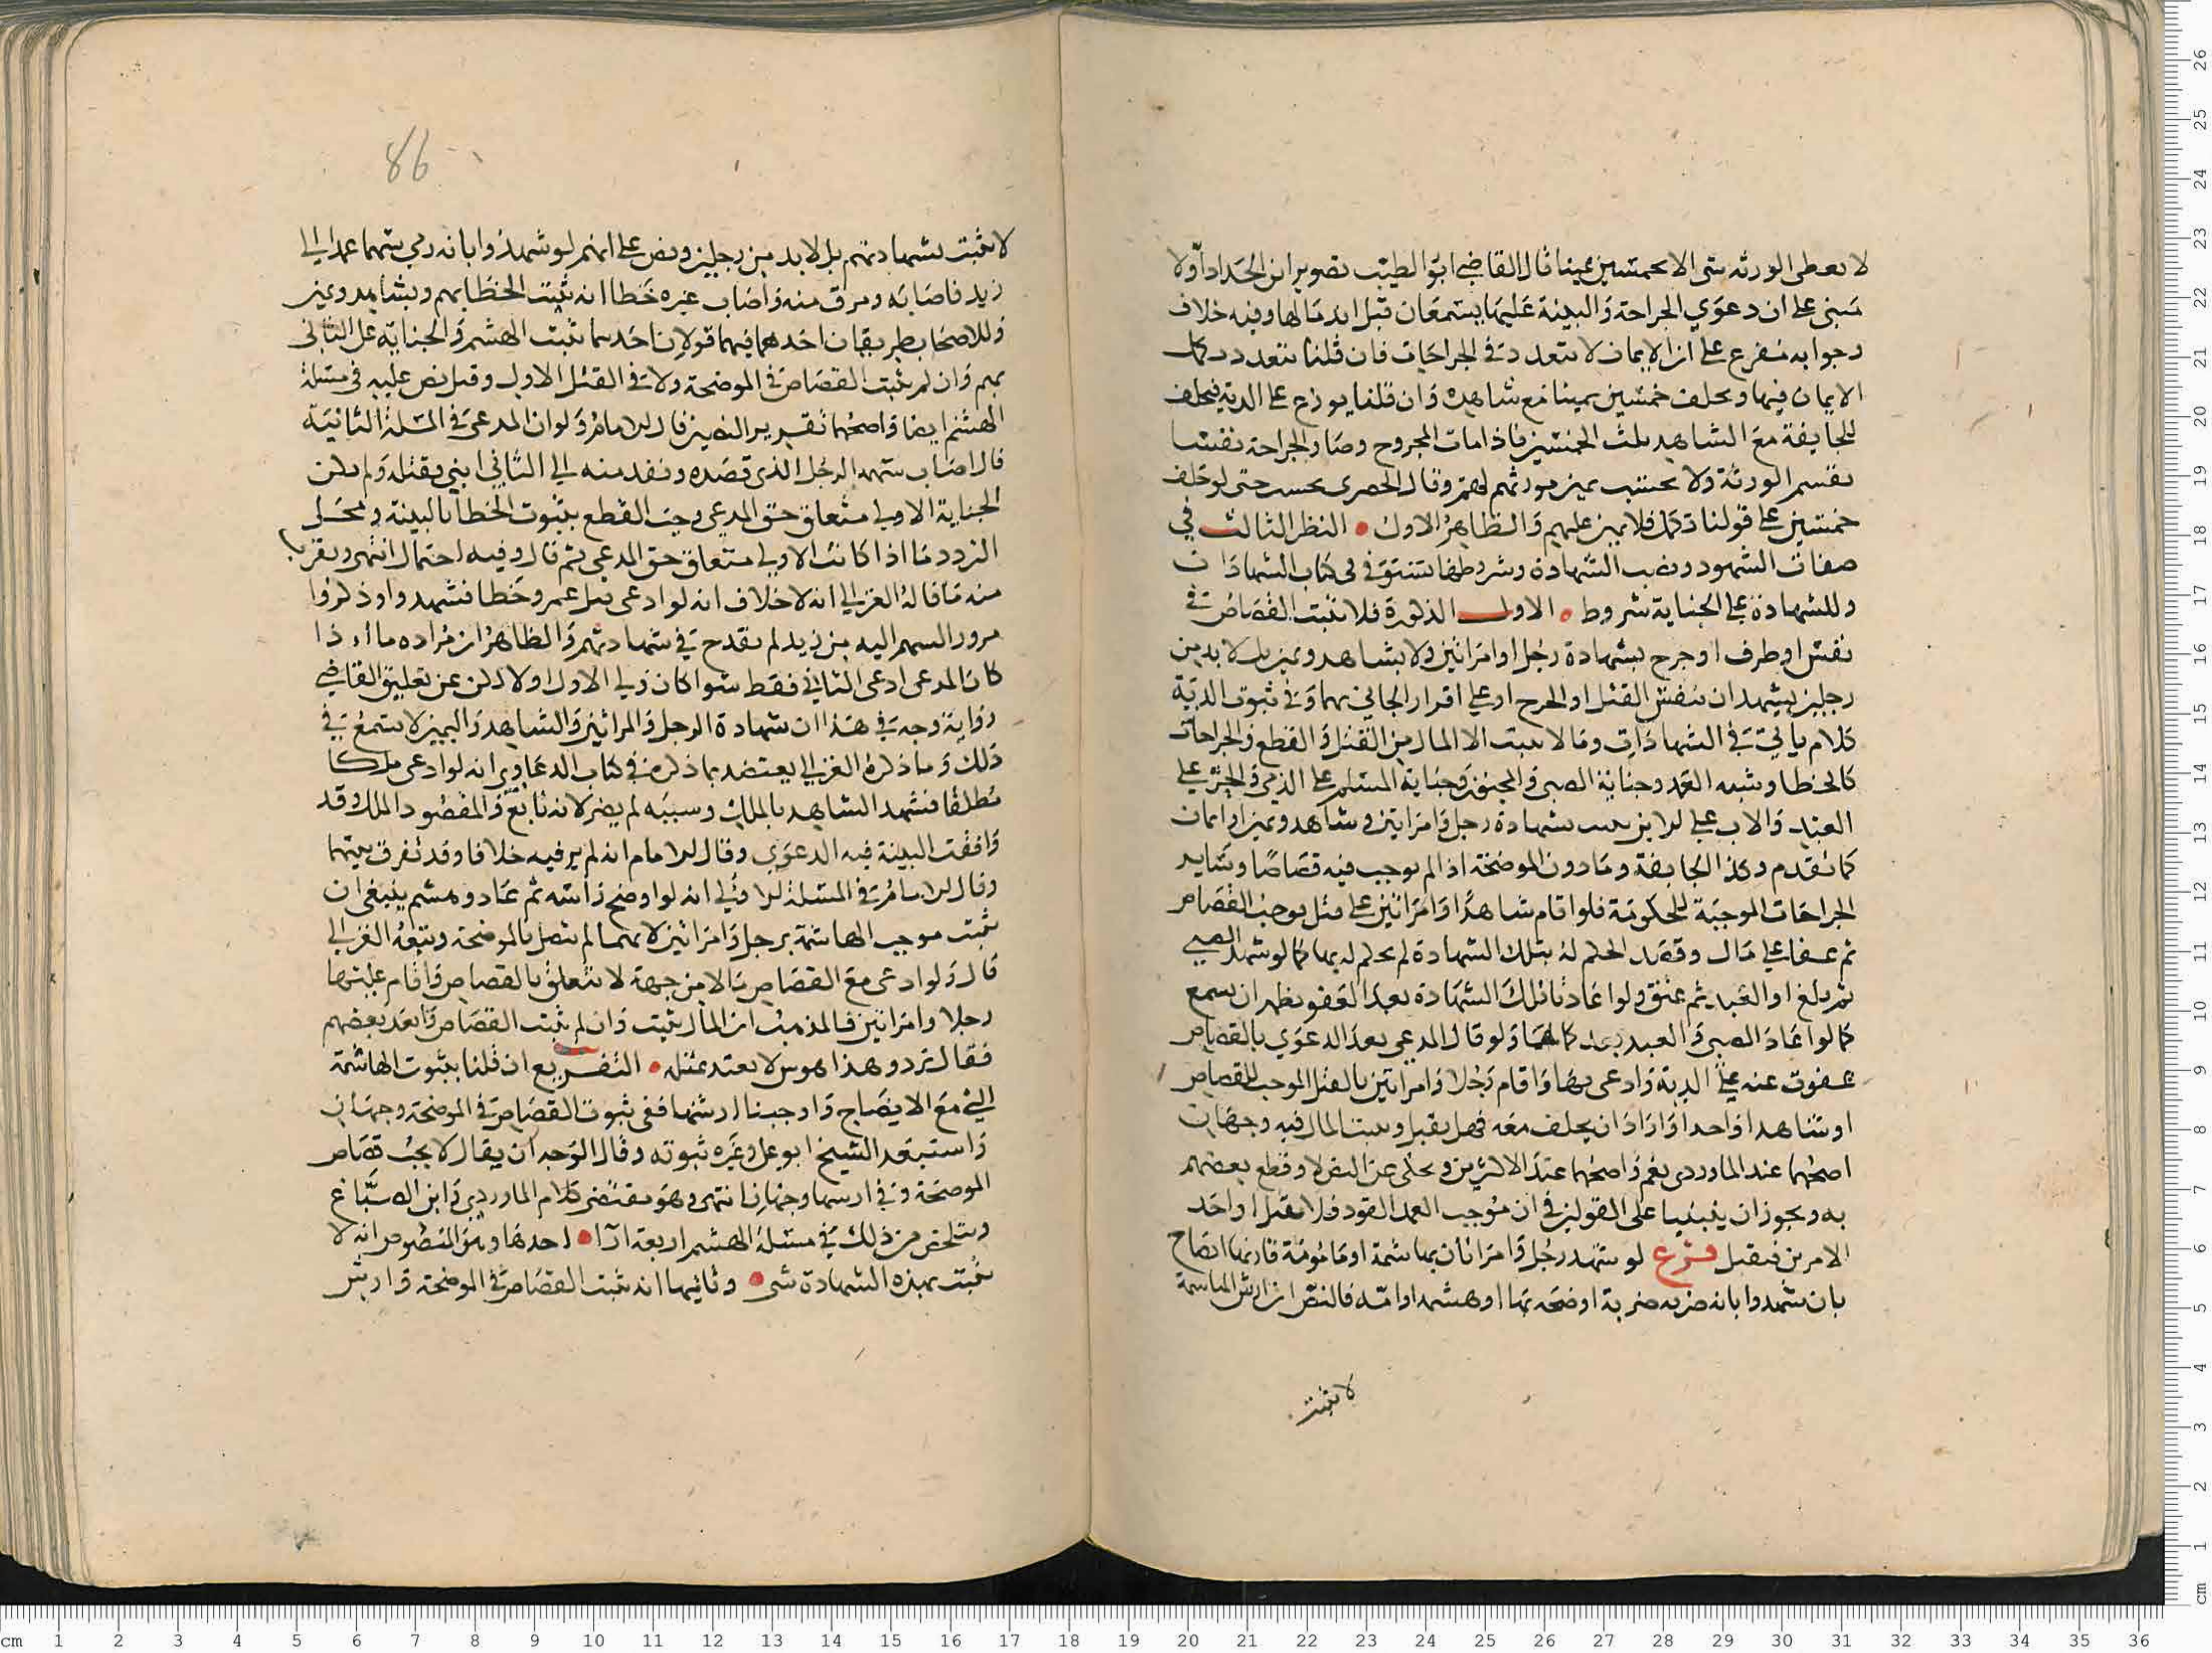 لا يعطى الورثة شي الا بخمسين يمينا قال القاضي ابو الطيب تصوير ابن الحداد اولا
مبني على ان دعوى الجراحة والبينة عليها يسمعان قبل اندمالها وفيه خلاف
وجوابه مفرع على ان الايمان لا تتعدد في الجراحات فان قلنا تتعدد كمل
الايمان فيها ويحلف خمسين يمينا مع شاهده وان قلنا يوزع على الدية فيحلف
للجايفة مع الشاهد ثلث الخمسين فاذا مات المجروح وصار الجراحة نفسا
يقسم الورثة ولا يحتسب يمين مورثهم لهم وقال الحصري يحسب حتى لو حلف
خمسين على قولنا تكمل فلا يمين عليهم والظاهر الاول النظر الثالث في
صفات الشهود ونصب الشهادة وشروطها تستوفى في كتاب الشهادات
وللشهادة على الجناية شروط الاول الذكورة فلا تثبت القصاص في
نفس او طرف او جرح بشهادة رجل او امراتين ولا بشاهد ويمين بل لا بد من
رجلين يشهدان بنفس القتل او الجرح او على اقرار الجاني بهما وفي ثبوت الدية
كلام ياتي في الشهادات وما لا يثبت الا المال من القتل والقطع والجراحات
كالخطا وشبه العمد وجناية الصبي والمجنون وجناية المسلم على الذمي والحر على
العبد والاب على الابن يثبت بشهادة رجل وامراتين وشاهد ويمين او ايمان
كما تقدم وكذا الجايفة وما دون الموضحة اذا لم نوجب فيه قصاصا وساير
الجراحات الموجبة للحكومة فلو اقام شاهدا وامراتين على قتل يوجب القصاص
ثم عفا على مال وقصد الحكم له بتلك الشهادة لم يحكم له بها كما لو شهد الصبي
ثم بلغ او العبد ثم عتق ولو اعادتا تلك الشهادة بعد العفو يظهر ان يسمع
كما لو اعاد الصبي والعبد بعد كمالهما ولو قال المدعي بعد الدعوى بالقصاص
عفوت عنه على الدية وادعى بها واقام رجلا وامراتين بالقتل الموجب للقصاص
او شاهدا واحدا واراد ان يحلف معه فهل يقبل ويثبت المال فيه وجهان
اصحهما عند الماوردي نعم واصحهما عند الاكثرين ويحكى عن النص لا وقطع بعضهم
به ويجوز ان ينبنيا على القولين في ان موجب العمد القود فلا يقبل او احد
الامرين فيقبل فرع لو شهد رجل وامراتان بهاشمة او مامومة قارنها ايضاح
بان شهدوا بانه ضربه ضربة اوضحه بها او هشمه او امه فالنص ان ارش الهاشمة
لا يثبت
86
لا يثبت بشهادتهم بل لا بد من رجلين ونص على انهم لو شهدوا بانه رمى سهما عمدا الى
زيد فاصابه ومرق منه واصاب غيره خطا انه تثبت الخطا بهم وبشاهد ويمين
وللاصحاب طريقان احدهما فيهما قولان احدهما تثبت الهشم والجناية على الثاني
بهم وان لم يثبت القصاص في الموضحة ولا في القتل الاول وقيل نص عليه في مسئلة
الهشم ايضا واصحهما تقرير النصين قال الامام ولو ان المدعي في المسئلة الثانية
قال اصاب سهمه الرجل الذي قصده ونفد منه الى الثاني ابني فقتله ولم يكن
الجناية الاولى متعلق حق المدعي وجب القطع بثبوت الخطا بالبينة ومحل
التردد ما اذا كانت الاولى متعلق حق المدعي ثم قال وفيه احتمال انتهى ويقرب
منه ما قاله الغزالي انه لا خلاف انه لو ادعى قتل عمرو خطا فشهدوا وذكروا
مرور السهم اليه من زيد لم يقدح في شهادتهم والظاهر ان مراده ما اذا
كان المدعي ادعى الثاني فقط سوا كان ولي الاول او لا ولكن عن تعليق القاضي
رواية وجه في هذا ان شهادة الرجل والمراتين والشاهد واليمين لا تسمع في
ذلك وما ذكره الغزالي يعتضد بما ذكره في كتاب الدعاوي انه لو ادعى ملكا
مطلقا فشهد الشاهد بالملك وسببه لم يضر لانه تابع والمقصود الملك وقد
وافقت البينة فيه الدعوى وقال الامام انه لم ير فيه خلافا وقد نفرق بينهما
وقال الامام في المسئلة الاولى انه لو اوضح راسه ثم عاد وهشم ينبغي ان
يثبت موجب الهاشمة برجل وامراتين لانها لم تتصل بالموضحة وتبعه الغزالي
قال ولو ادعى مع القصاص مالا من جهة لا تتعلق بالقصاص واقام عليهما
رجلا وامراتين فالمذهب ان المال يثبت وان لم يثبت القصاص وابعد بعضهم
فقال تردد وهذا هوس لا يعتد بمثله التفريع ان قلنا بثبوت الهاشمة
التي مع الايضاح واوجبنا ارشها ففي ثبوت القصاص في الموضحة وجهان
واستبعد الشيخ ابو علي وغيره ثبوته وقال الوجه ان يقال لا يجب قصاص
الموضحة وفي ارشها وجهان انتهى وهو مقتضى كلام الماوردي وابن الصباغ
ويتلخص من ذلك في مسئلة الهشم اربعة ارا احدها وهو المنصوص انه لا
يثبت بهذه الشهادة شي وثانيها انه تثبت القصاص في الموضحة وارش